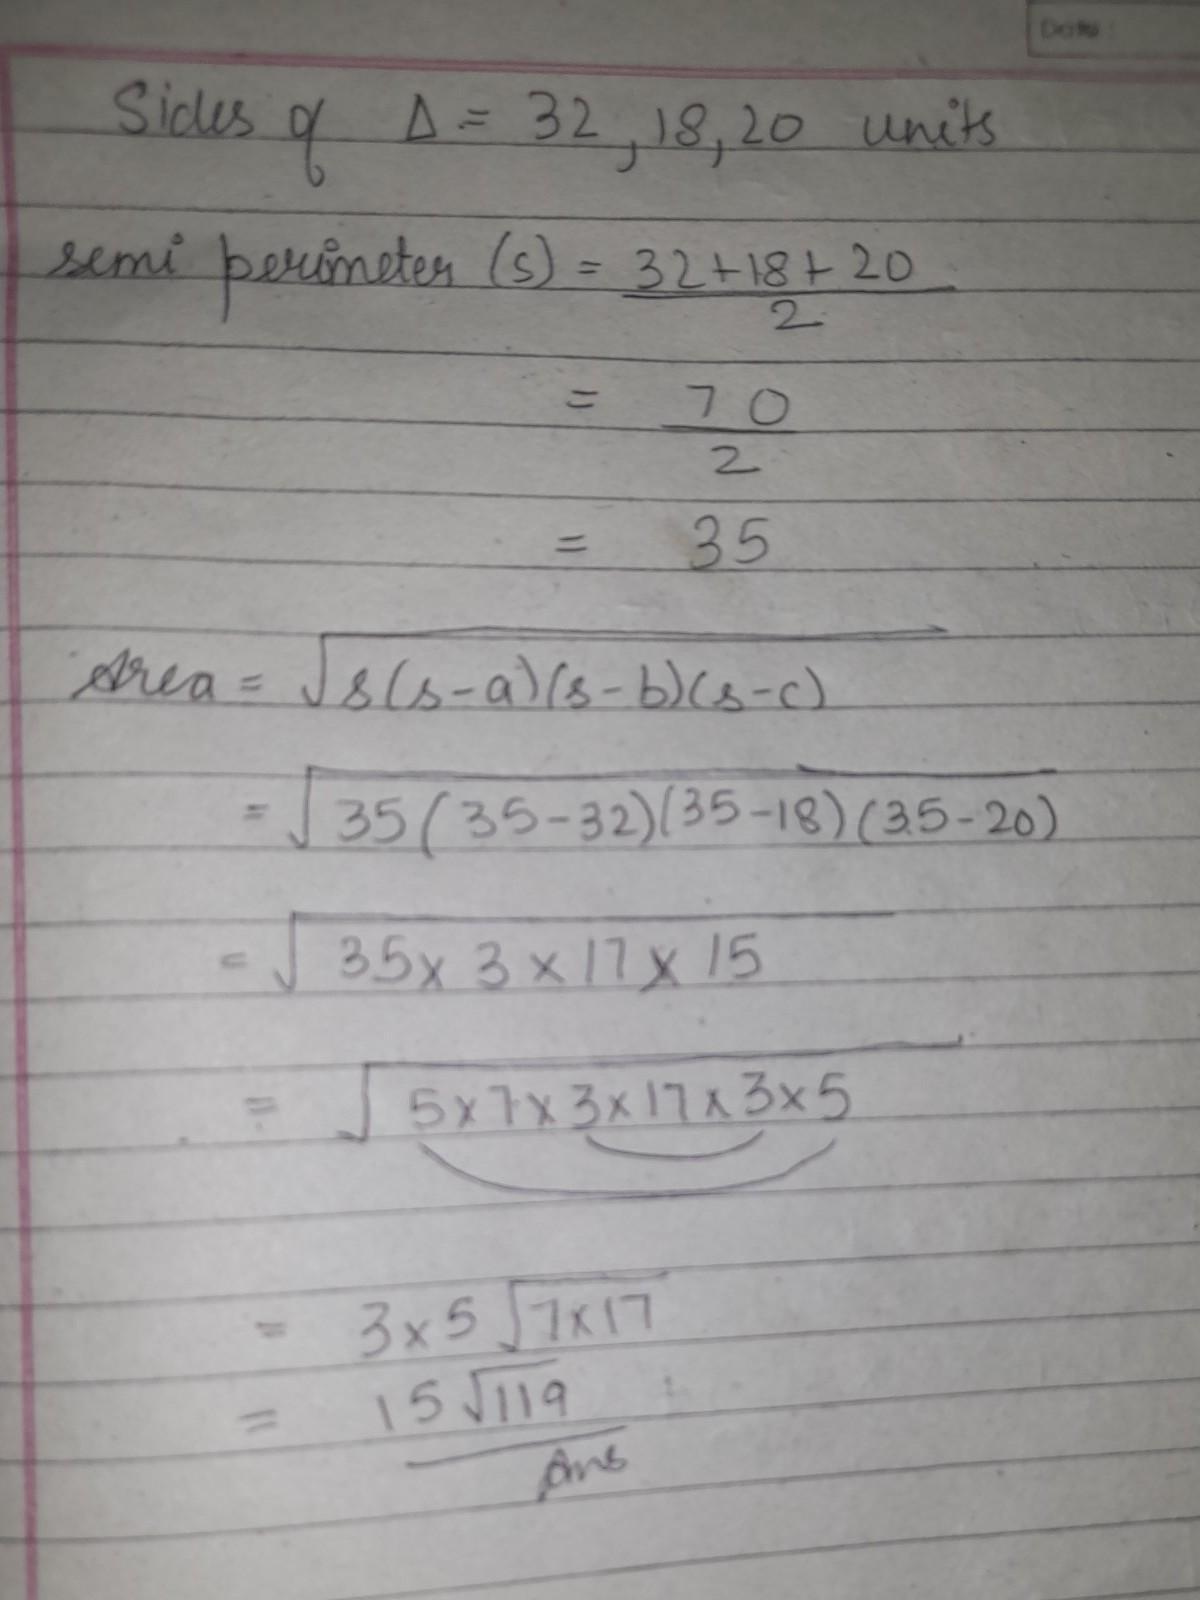 Date :
Sides of Δ = 32, 18, 20 units
semi perimeter (s) = 32+18+20
2
= 70
2
= 35
Area = √s(s-a)(s-b)(s-c)
= √35(35-32)(35-18)(35-20)
= √35x 3 x 17 x 15
= √5x7x3x17x3x5
= 3x5√7x17
= 15√119
Ans